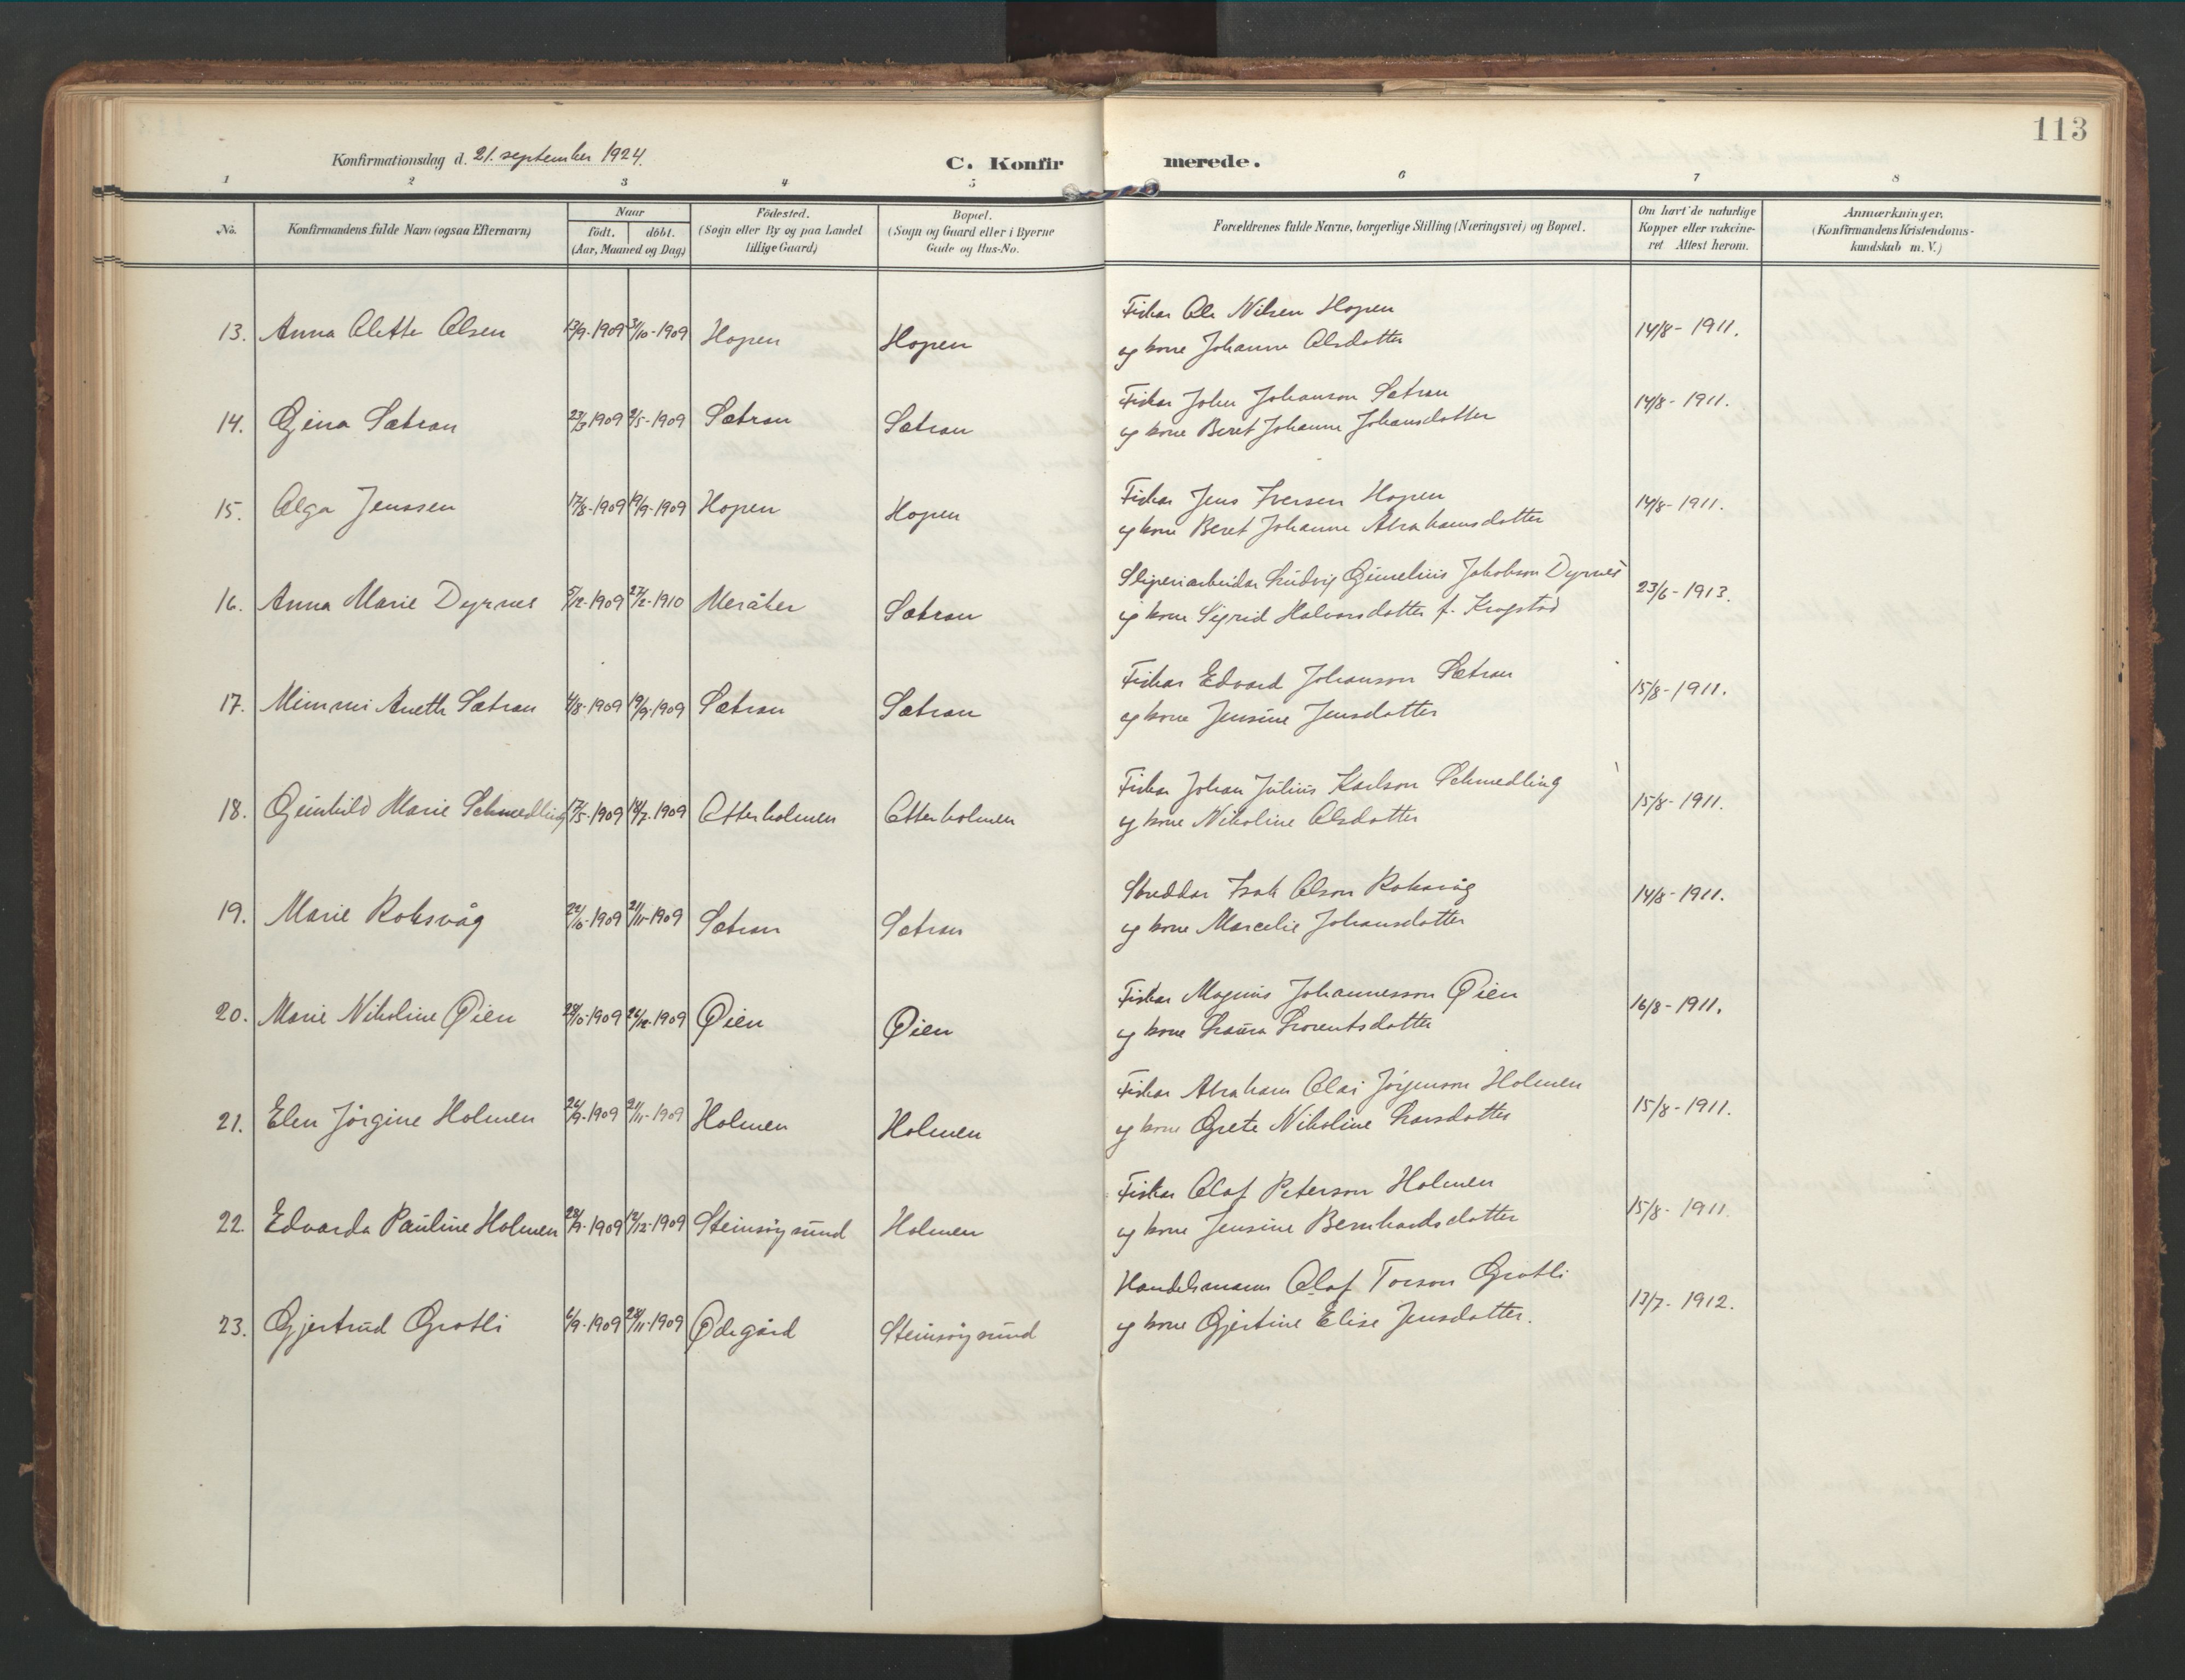 113
Konfirmationsdag d. 21. september 1924.
C. Konfirmerede.
1 2 3 4 5 6 7 8
No.
Konfirmandens fulde Navn (ogsaa Efternavn)
Naar
födt. döbt.
(Aar, Maaned og Dag)
Födested.
(Sogn eller By og paa Landet
tillige Gaard)
Bopæl.
(Sogn og Gaard eller i Byerne
Gade og Hus-No.
Forældrenes fulde Navne, borgerlige Stilling (Næringsvei) og Bopæl.
Om havt de naturlige
Kopper eller vakcine-
ret Attest herom.
Anmærkninger,
(Konfirmandens Kristendoms-
kundskab m. V.)
13. Anna Olette Olsen 13/9-1909 31/10-1909 Hopen Hopen
Fiskar Ole Nilsen Hopen
og kone Johanne Olsdotter
14/8-1911.
14. Gina Sætran 23/3 1909 2/5-1909 Sætran Sætran
Fiskar John Johanson Sætran
og kone Beret Johanne Johansdotter
14/8-1911.
15. Olga Jenssen 17/8-1909 19/9-1909 Hopen Hopen
Fiskar Jens Iversen Hopen
og kone Beret Johanne Abrahamsdotter
14/8-1911.
16. Anna Marie Dyrnes 5/12-1909 27/2-1910 Meråker Sætran
Sliperiarbeidar Ludvig Jakobson Dyrnes
og kone Sigrid Halvorsdotter f. Krogstad
23/6-1913.
17. Mimmi Aneth Sætran 4/8-1909 19/9-1909 Sætran Sætran
Fiskar Edvard Johanson Sætran
og kone Jensine Jensdotter
15/8-1911.
18. Gunhild Marie Schmedling 17/5-1909 18/7-1909 Otterholmen Otterholmen
Fiskar Johan Julius Karlson Schmedling
og kone Nikoline Olsdotter
15/8-1911.
19. Marie Roksvåg 22/10-1909 21/11-1909 Sætran Sætran
Skreddar Isak Olson Roksvåg
og kone Marcelie Johansdotter
14/8-1911.
20. Marie Nikoline Øien 28/10-1909 26/12-1909 Øien Øien
Fiskar Magnus Johannesson Øien
og kone Laura Lorentsdotter
16/8-1911.
21. Elen Jörgine Holmen 26/9-1909 21/11-1909 Holmen Holmen
Fiskar Abraham Olai Jörgenson Holmen
og kone Grete Nikoline Larsdotter
15/8-1911.
22. Edvarda Pauline Holmen 28/9-1909 12/12-1909 Steinsöysund Holmen
Fiskar Olaf Peterson Holmen
og kone Jensine Bernhardsdotter
15/8-1911.
23. Gjertrud Grotli 6/9-1909 28/11-1909 Ødegård Steinsöysund
Handelsmann Olaf Torson Grotli
og kone Gjertine Elise Jensdotter.
13/7-1912.